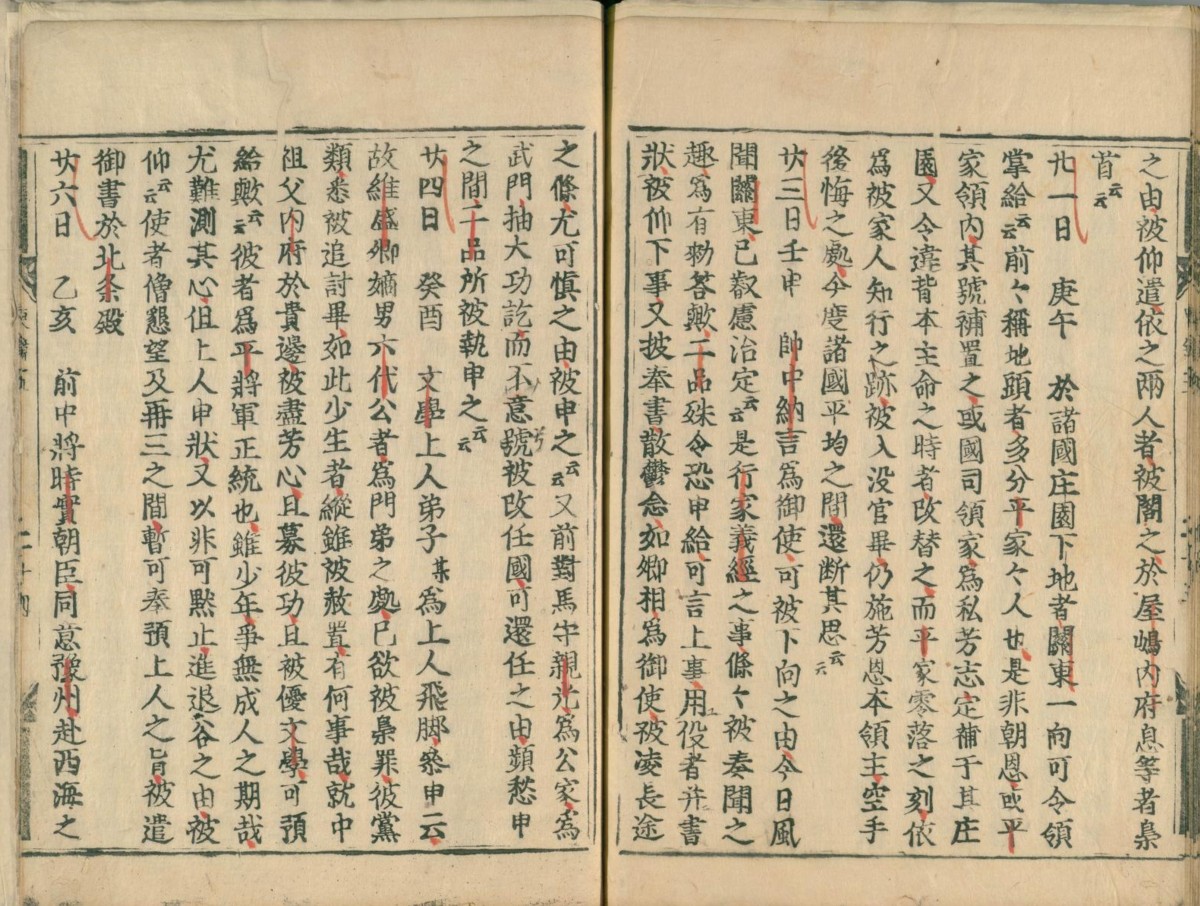 之由被仰遣依之兩人者被閣之於屋嶋内府息等者梟
首云云
廿一日　庚午　於諸國庄園下地者關東一向可令領
掌給云云前々稱地頭者多分平家々人也是非朝恩或平
家領内其號補置之或國司領家爲私芳志定補于其庄
園又令違背本主命之時者改替之而平家零落之刻依
爲被家人知行之跡被入没官畢仍施芳恩本領主空手
後悔之處今度諸國平均之間還断其思云云
廿三日壬申　帥中納言爲御使可被下向之由今日風
聞關東已叡慮治定云云是行家義經之事條々被奏聞之
趣爲有勅答歟二品殊令恐申給可言上事用役者幷書
狀被仰下事又披奉書散鬱念如卿相爲御使被凌長途
之條尤可愼之由被申之云云又前對馬守親光爲公家爲
武門抽大功訖而不意號被改任國可還任之由頻愁申
之間二品所被執申之云云
廿四日　癸酉　文學上人弟子某爲上人飛脚參申云
故維盛卿嫡男六代公者爲門弟之處已欲被梟罪彼黨
類悉被追討畢如此少生者縱雖被赦置有何事哉就中
祖父内府於貴邊被盡芳心且募彼功且被優文學可預
給歟云云彼者爲平將軍正統也雖少年爭無成人之期哉
尤難測其心但上人申狀又以非可黙止進退谷之由被
仰云云使者僧懇望及再三之間暫可奉預上人之旨被遣
御書於北条殿
廿六日　乙亥　前中將時實朝臣同意豫州赴西海之